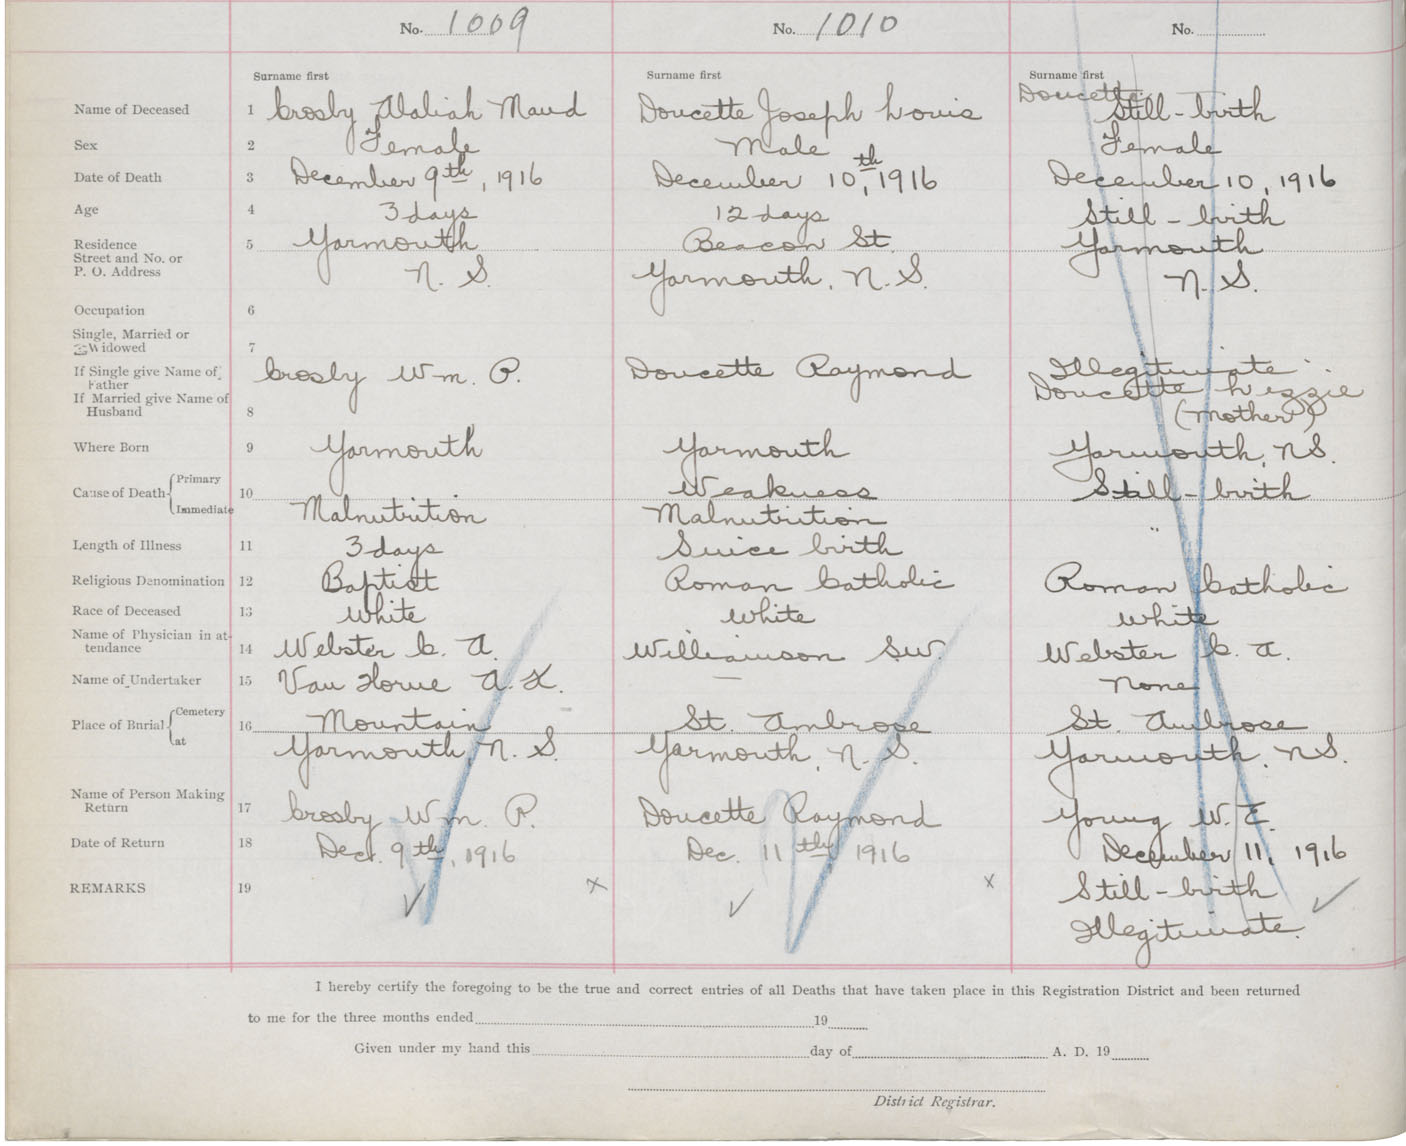 No. 1009 No. 1010 No.
Surname first Surname first Surname first
Name of Deceased 1 Crosby Maud Doucette Joseph Louis Doucette Still-birth
Sex 2 Female Male Female
Date of Death 3 December 9th, 1916 December 10th, 1916 December 10, 1916
Age 4 3 days 12 days Still-birth
Residence 5 Yarmouth Beacon St. Yarmouth
Street and No. or
P. O. Address N. S. Yarmouth, N. S. N. S.
Occupation 6
Single, Married or
Widowed 7
If Single give Name of Crosby Wm. P. Doucette Raymond Illegitimate
Father
If Married give Name of Doucette Lizzie
Husband 8 (Mother)
Where Born 9 Yarmouth Yarmouth Yarmouth, N.S.
Cause of Death Primary 10 Weakness Still-birth
Immediate Malnutrition Malnutrition "
Length of Illness 11 3 days Suice birth
Religious Denomination 12 Baptist Roman Catholic Roman Catholic
Race of Deceased 13 White White White
Name of Physician in at-
tendance 14 Webster C. A. Williamson S.W. Webster C. A.
Name of Undertaker 15 Van Horne A. K. — None
Place of Burial Cemetery 16 Mountain St. Ambrose St. Ambrose
at Yarmouth, N. S. Yarmouth, N. S. Yarmouth, N.S.
Name of Person Making
Return 17 Crosby Wm. P. Doucette Raymond Young W. E.
Date of Return 18 Dec. 9th, 1916 Dec. 11th 1916 December 11, 1916
REMARKS 19 Still-birth
Illegitimate.
I hereby certify the foregoing to be the true and correct entries of all Deaths that have taken place in this Registration District and been returned
to me for the three months ended 19
Given under my hand this day of A. D. 19
District Registrar.